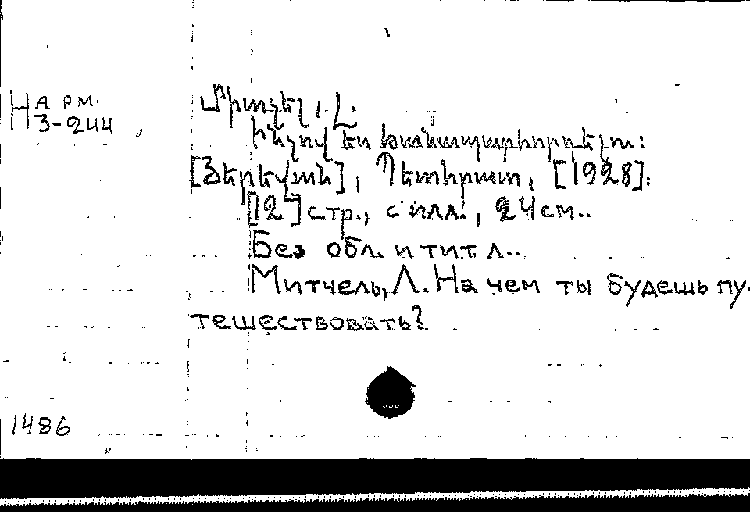 На рм.
3-244
Միտչել, Լ.
Ինչով ես ճանապարհորդելու:
[Յերեվան], Պետհրատ, [1928].
[12] стр., с илл., 24 см..
Без обл. и тит л..
Митчель, Л. На чем ты будешь пу-
тешествовать?
1486